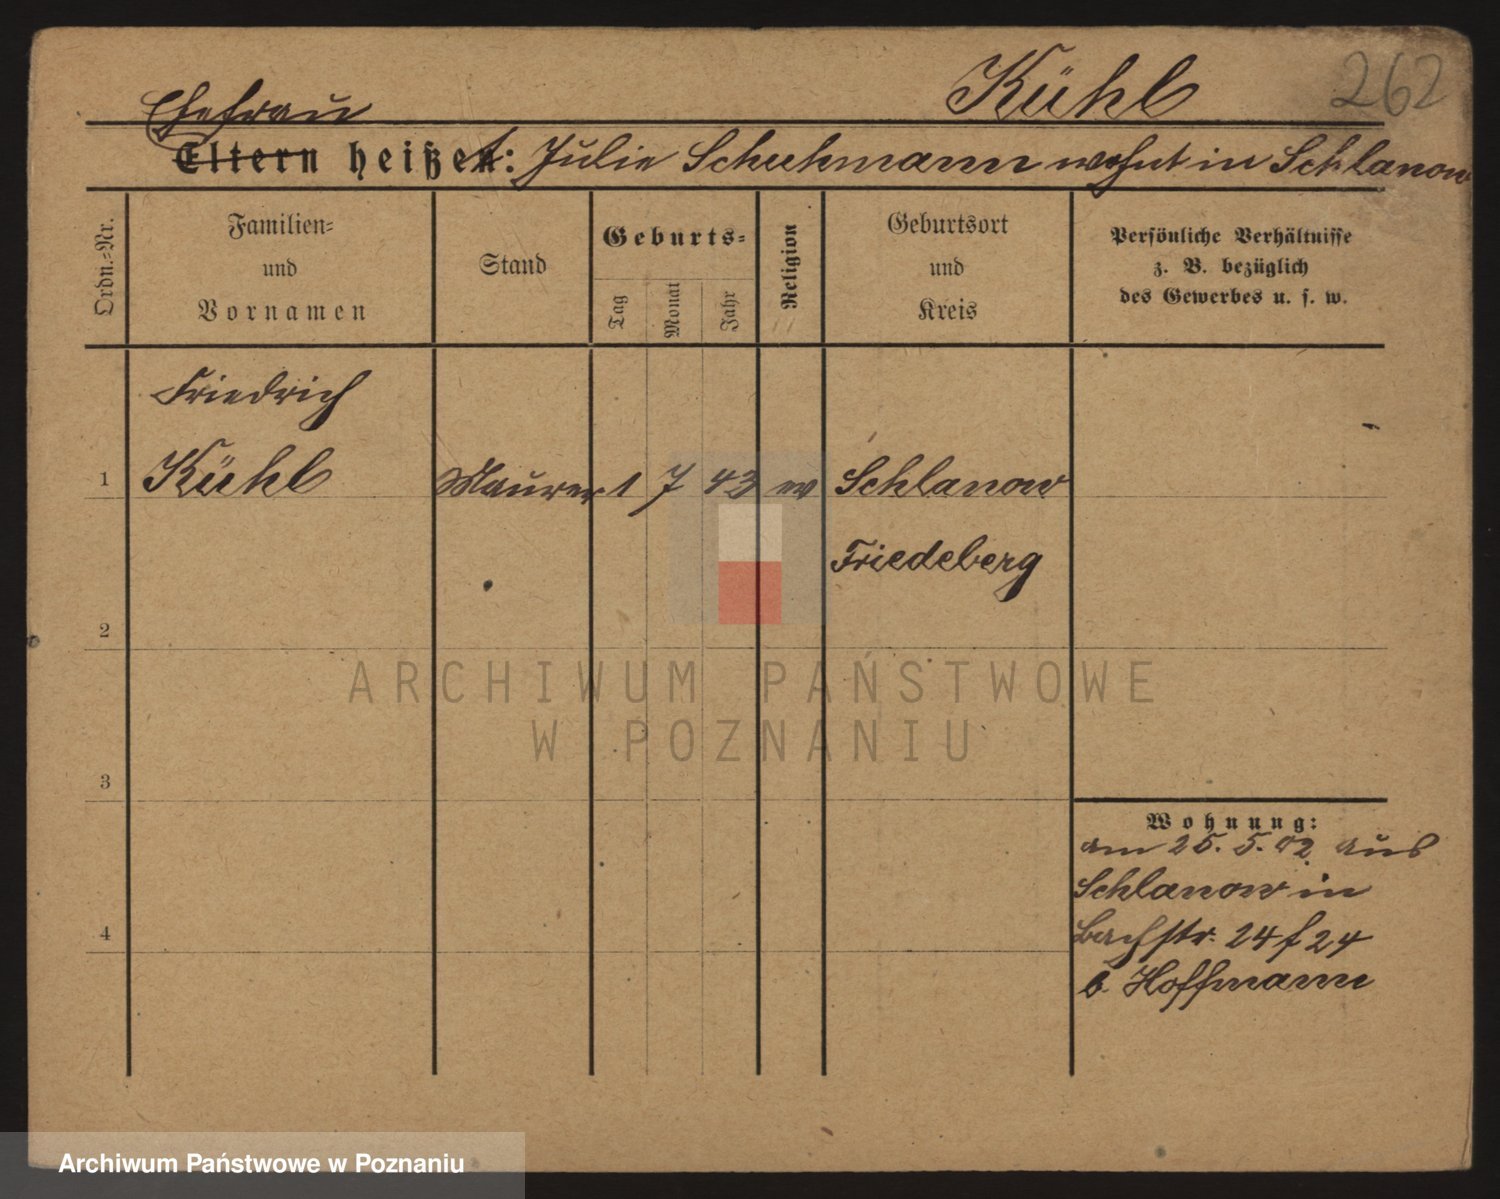 Kühl 262
Ehefrau
Eltern heißt: Julie Schuhmann wohnt in Schlanow
Ordn.-Nr.
Familien-
und
Vornamen
Stand
Geburts-
Tag
Monat
Jahr
Religion
Geburtsort
und
Kreis
Persönliche Verhältnisse
z. B. bezüglich
des Gewerbes u. s. w.
Friedrich
1 Kühl Maurer 1 7 43 ev Schlanow
Friedeberg
2
ARCHIWUM PAŃSTWOWE
W POZNANIU
3
Wohnung:
am 25. 5. 02 aus
Schlanow in
4 Bachstr. 24 f 24
b. Hoffmann
Archiwum Państwowe w Poznaniu